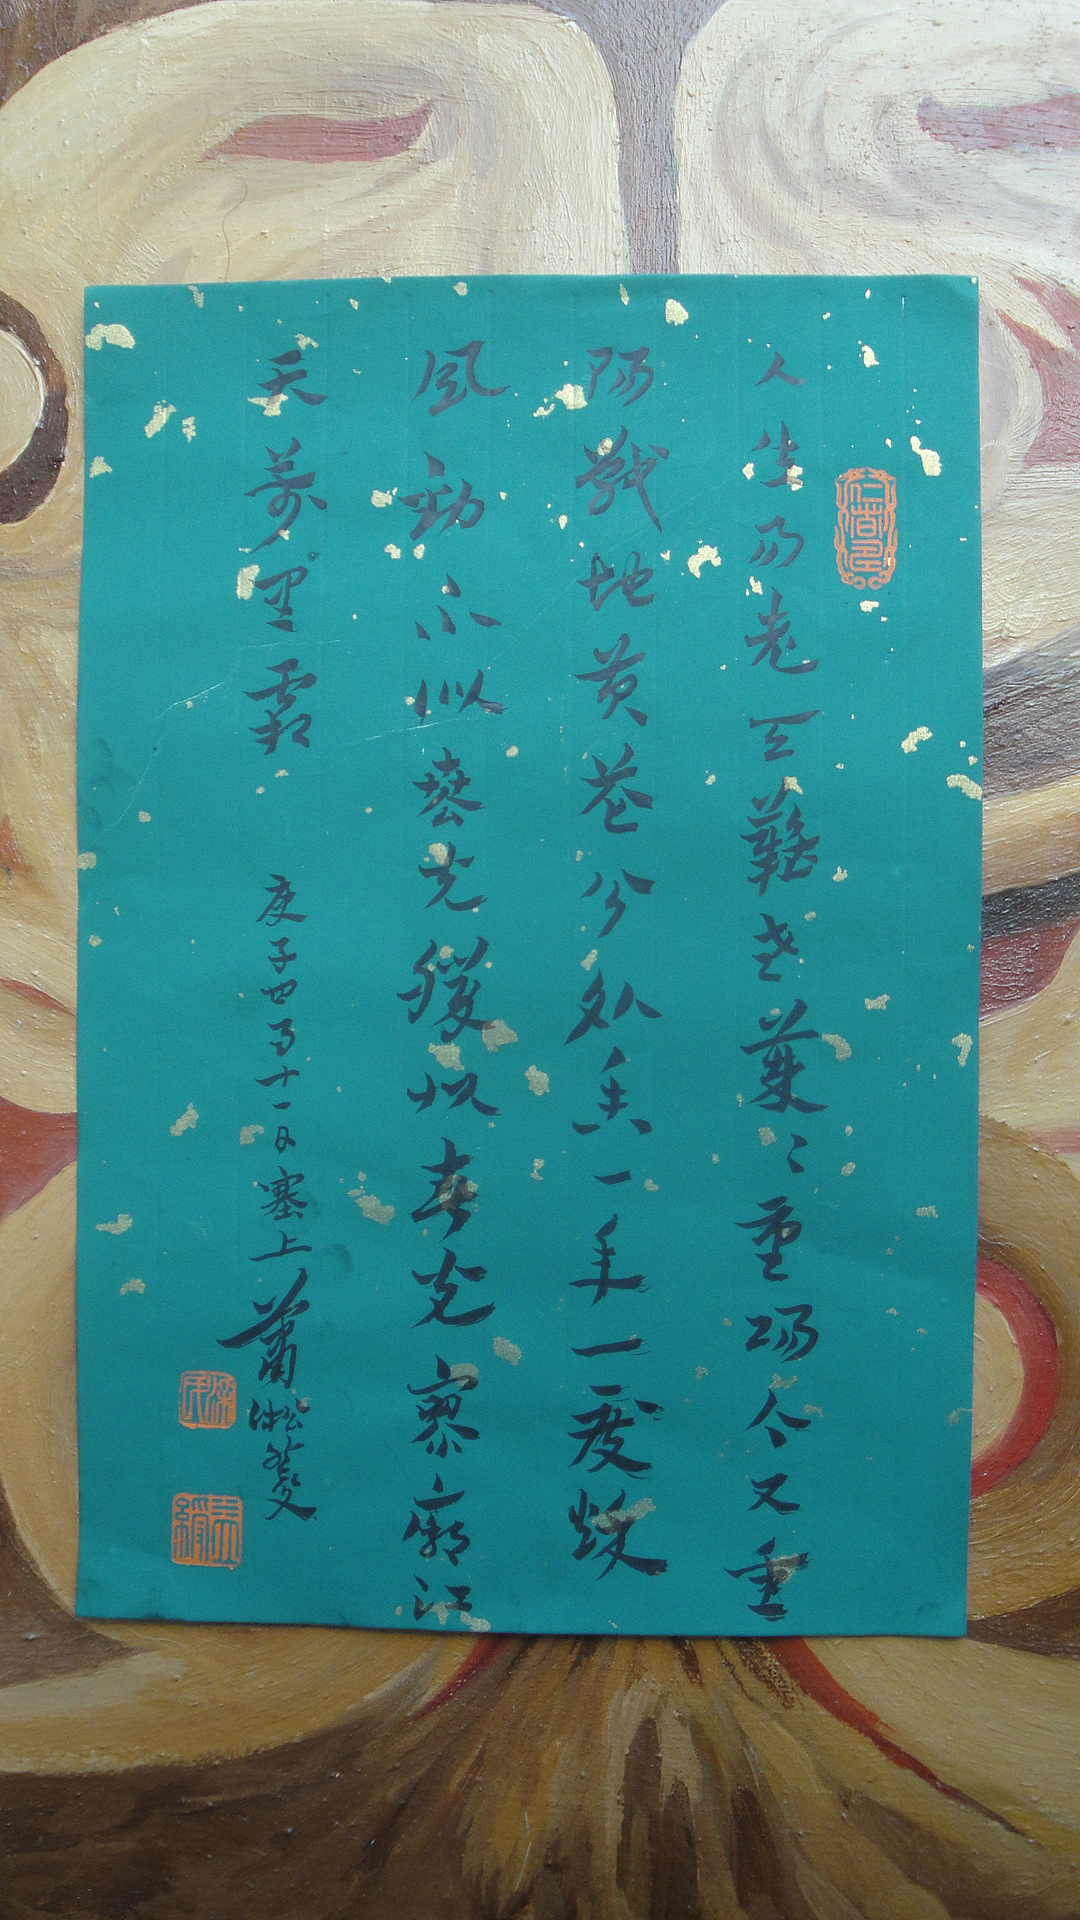 人生易老天難老歲〻重陽今又重
陽戰地黃花分外香一年一度秋
風勁不似春光勝似春光寥廓江
天萬里霜
庚子四月十一日塞上蕭淞